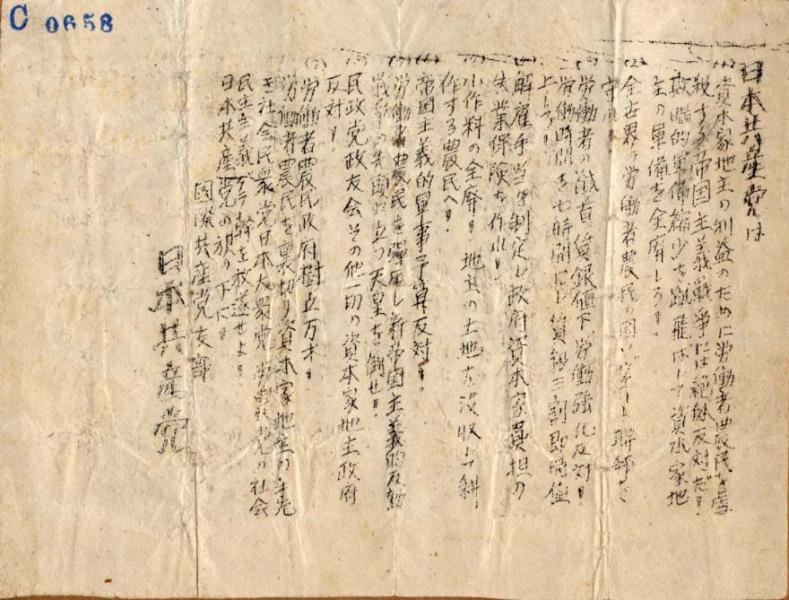 C 0658
日本共産党は
(1) 資本家地主の利益のために労働者農民を虐
殺する帝国主義戦争には絶対反対だ!
欺瞞的軍備縮少を蹴飛ばして資本家地
主の軍備を全廃しろ!
(2) 全世界の労働者農民の国ソヴェート聯邦を
守れ!
労働者の馘首賃銀値下労働強化反対!
労働時間を七時間にし賃銀三割即時値
上しろ!
(4) 解雇手当を制定し政府資本家負担の
失業保険を作れ!
小作料の全廃! 地主の土地を没収して耕
作する農民へ!
(6) 帝国主義的軍事予算反対!
労働者農民を弾圧し新帝国主義的反動
戦争の先頭に立つ天皇を倒せ!
民政党政友会その他一切の資本家地主政府
反対!
労働者農民政府樹立万才!
労働者農民を裏切り資本家地主の手先
き社会民衆党日本大衆党労農党の社会
民主主義ダラ幹を放逐せよ!
日本共産党の旗の下に!
国際共産党支部
日本共産党